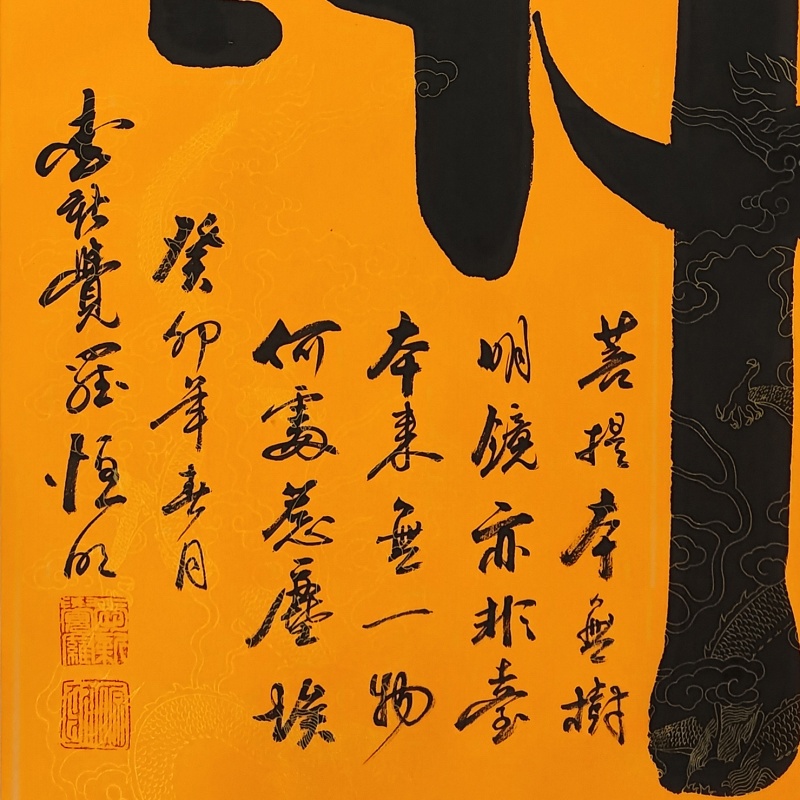 菩提本無樹
明鏡亦非臺
本來無一物
何處惹塵埃
癸卯年春月
愛新覺羅恒明